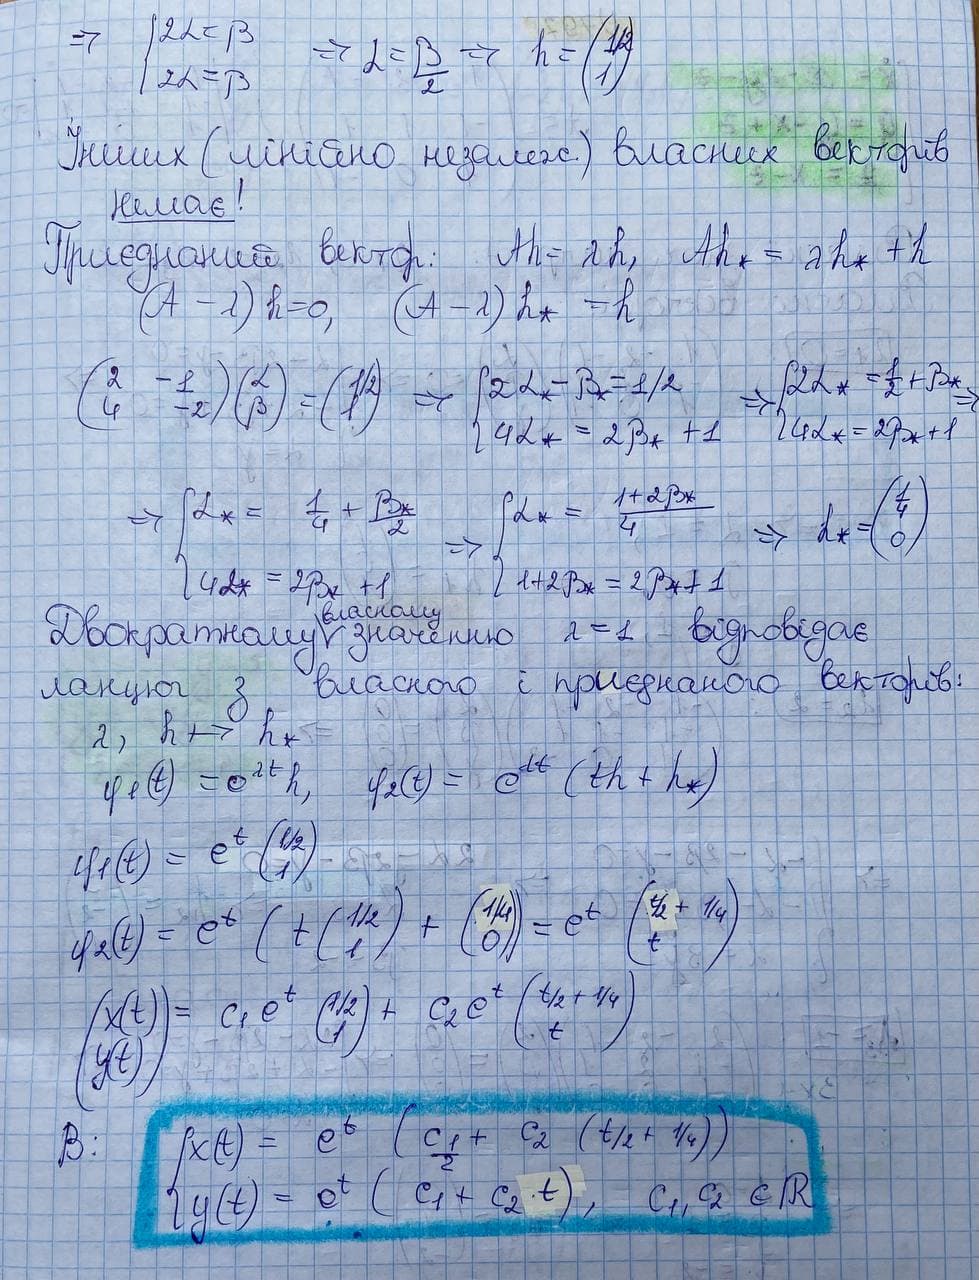 ⇒ { 2α = β ⇒ α = β/2 ⇒ h = (1/2 1)
2α = β
Інших (лінійно незалеж.) власних векторів
немає!
Приєднаний вектор: Ah = λh, Ah* = λh* + h
(A - λ) h = 0, (A - λ) h* = h
(2 -1 4 -2)(α β) = (1/2 1) ⇒ { 2α* - β* = 1/2 ⇒ { 2α* = 1/2 + β* ⇒
4α* = 2β* + 1 4α* = 2β* + 1
⇒ { α* = 1/4 + β*/2 ⇒ { α* = (1+2β*)/4 ⇒ h* = (1/4 0)
4α* = 2β* + 1 1+2β* = 2β* + 1
Двократному власному значенню λ = 1 відповідає
ланцюг з власного і приєднаного векторів:
λ, h ↦ h*
φ1(t) = e^λt h, φ2(t) = e^λt (th + h*)
φ1(t) = e^t (1/2 1)
φ2(t) = e^t (t (1/2 1) + (1/4 0)) = e^t (t/2 + 1/4 t)
(x(t) y(t)) = c1 e^t (1/2 1) + c2 e^t (t/2 + 1/4 t)
В: { x(t) = e^t (c1/2 + c2 (t/2 + 1/4))
y(t) = e^t (c1 + c2 · t), c1, c2 ∈ ℝ